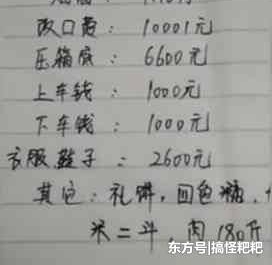 改口费：10001元
压箱底：6600元
上车钱：1000元
下车钱：1000元
衣服鞋子：2600元
其它：礼饼，回色糖，
米二斗，肉180斤
东方号|搞怪粑粑